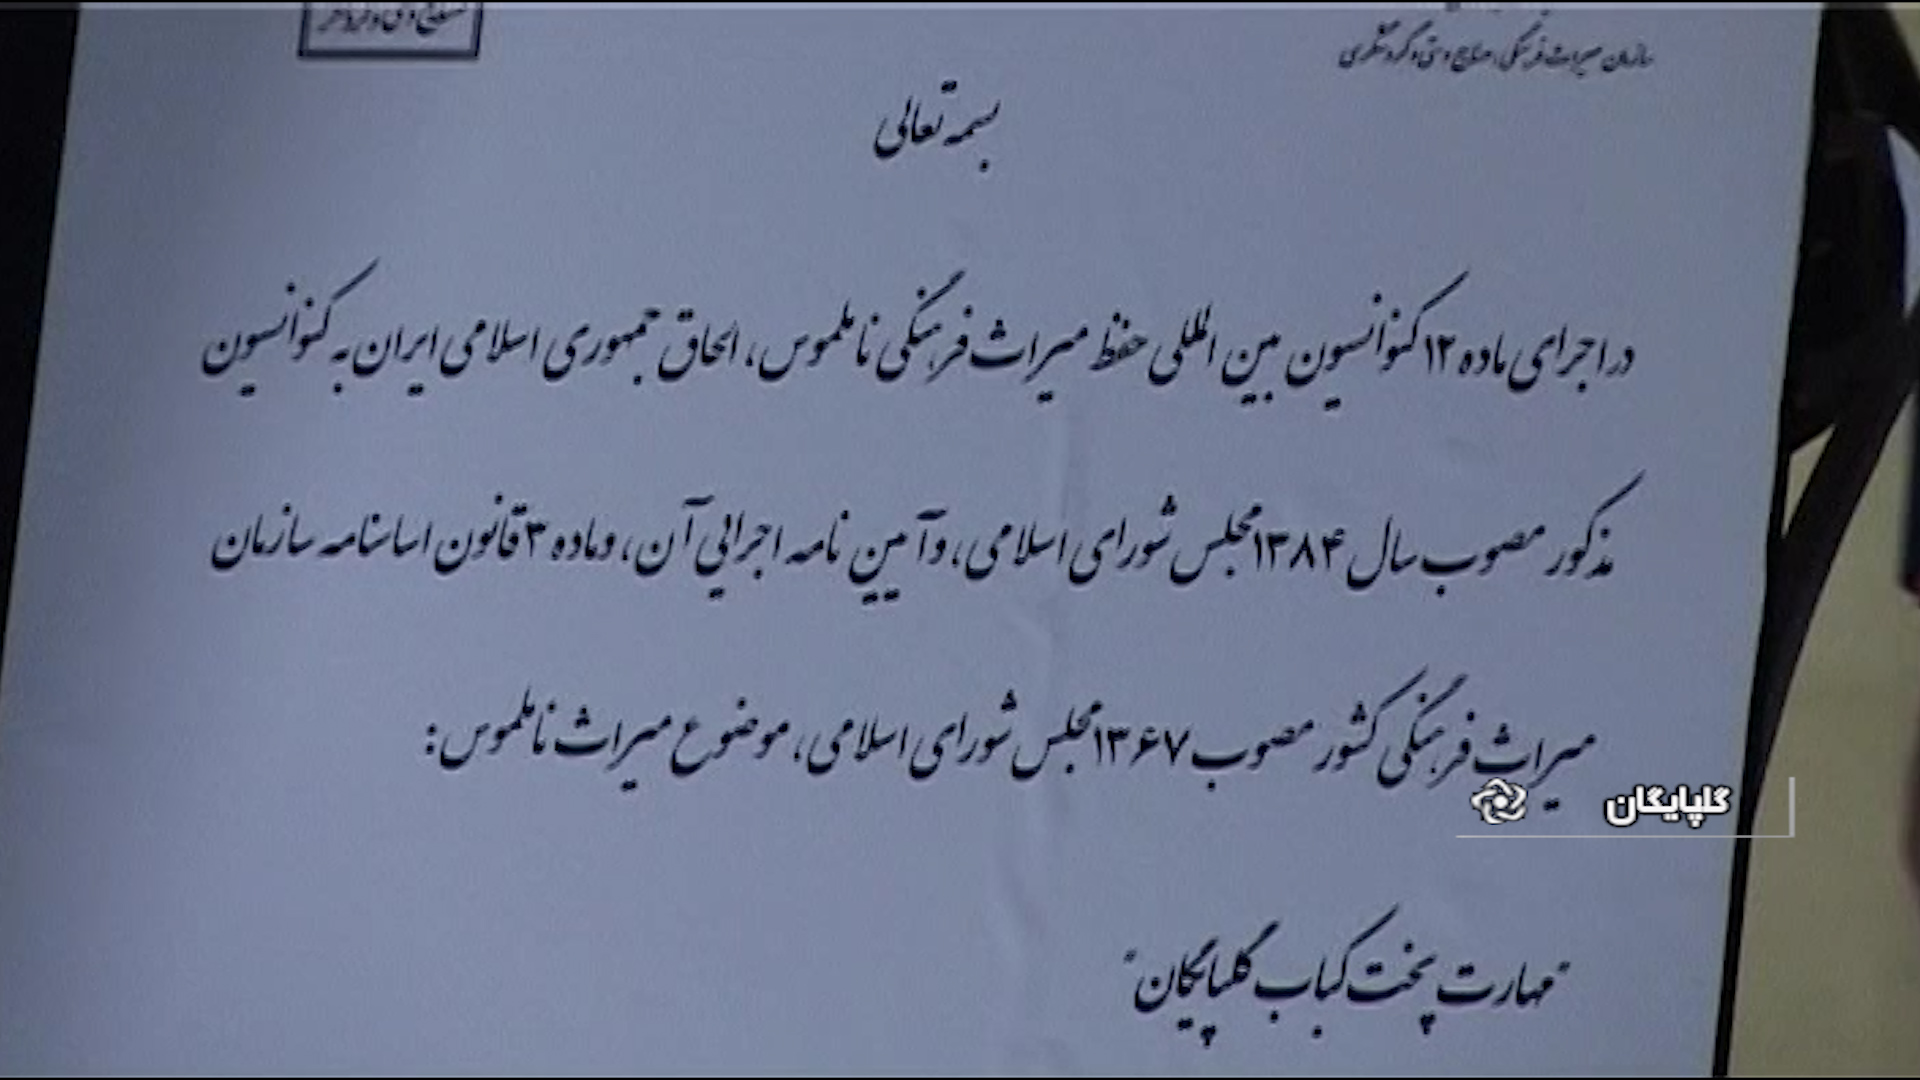 سازمان میراث فرهنگی، صنایع دستی و گردشگری
بسمه تعالی
در اجرای ماده ۱۲ کنوانسیون بین المللی حفظ میراث فرهنگی ناملموس، الحاق جمهوری اسلامی ایران به کنوانسیون
مذکور مصوب سال ۱۳۸۴ مجلس شورای اسلامی، و آیین نامه اجرایی آن، و ماده ۳ قانون اساسنامه سازمان
میراث فرهنگی کشور مصوب ۱۳۶۷ مجلس شورای اسلامی، موضوع میراث ناملموس:
گلپایگان
"مهارت پخت کباب گلپایگان"